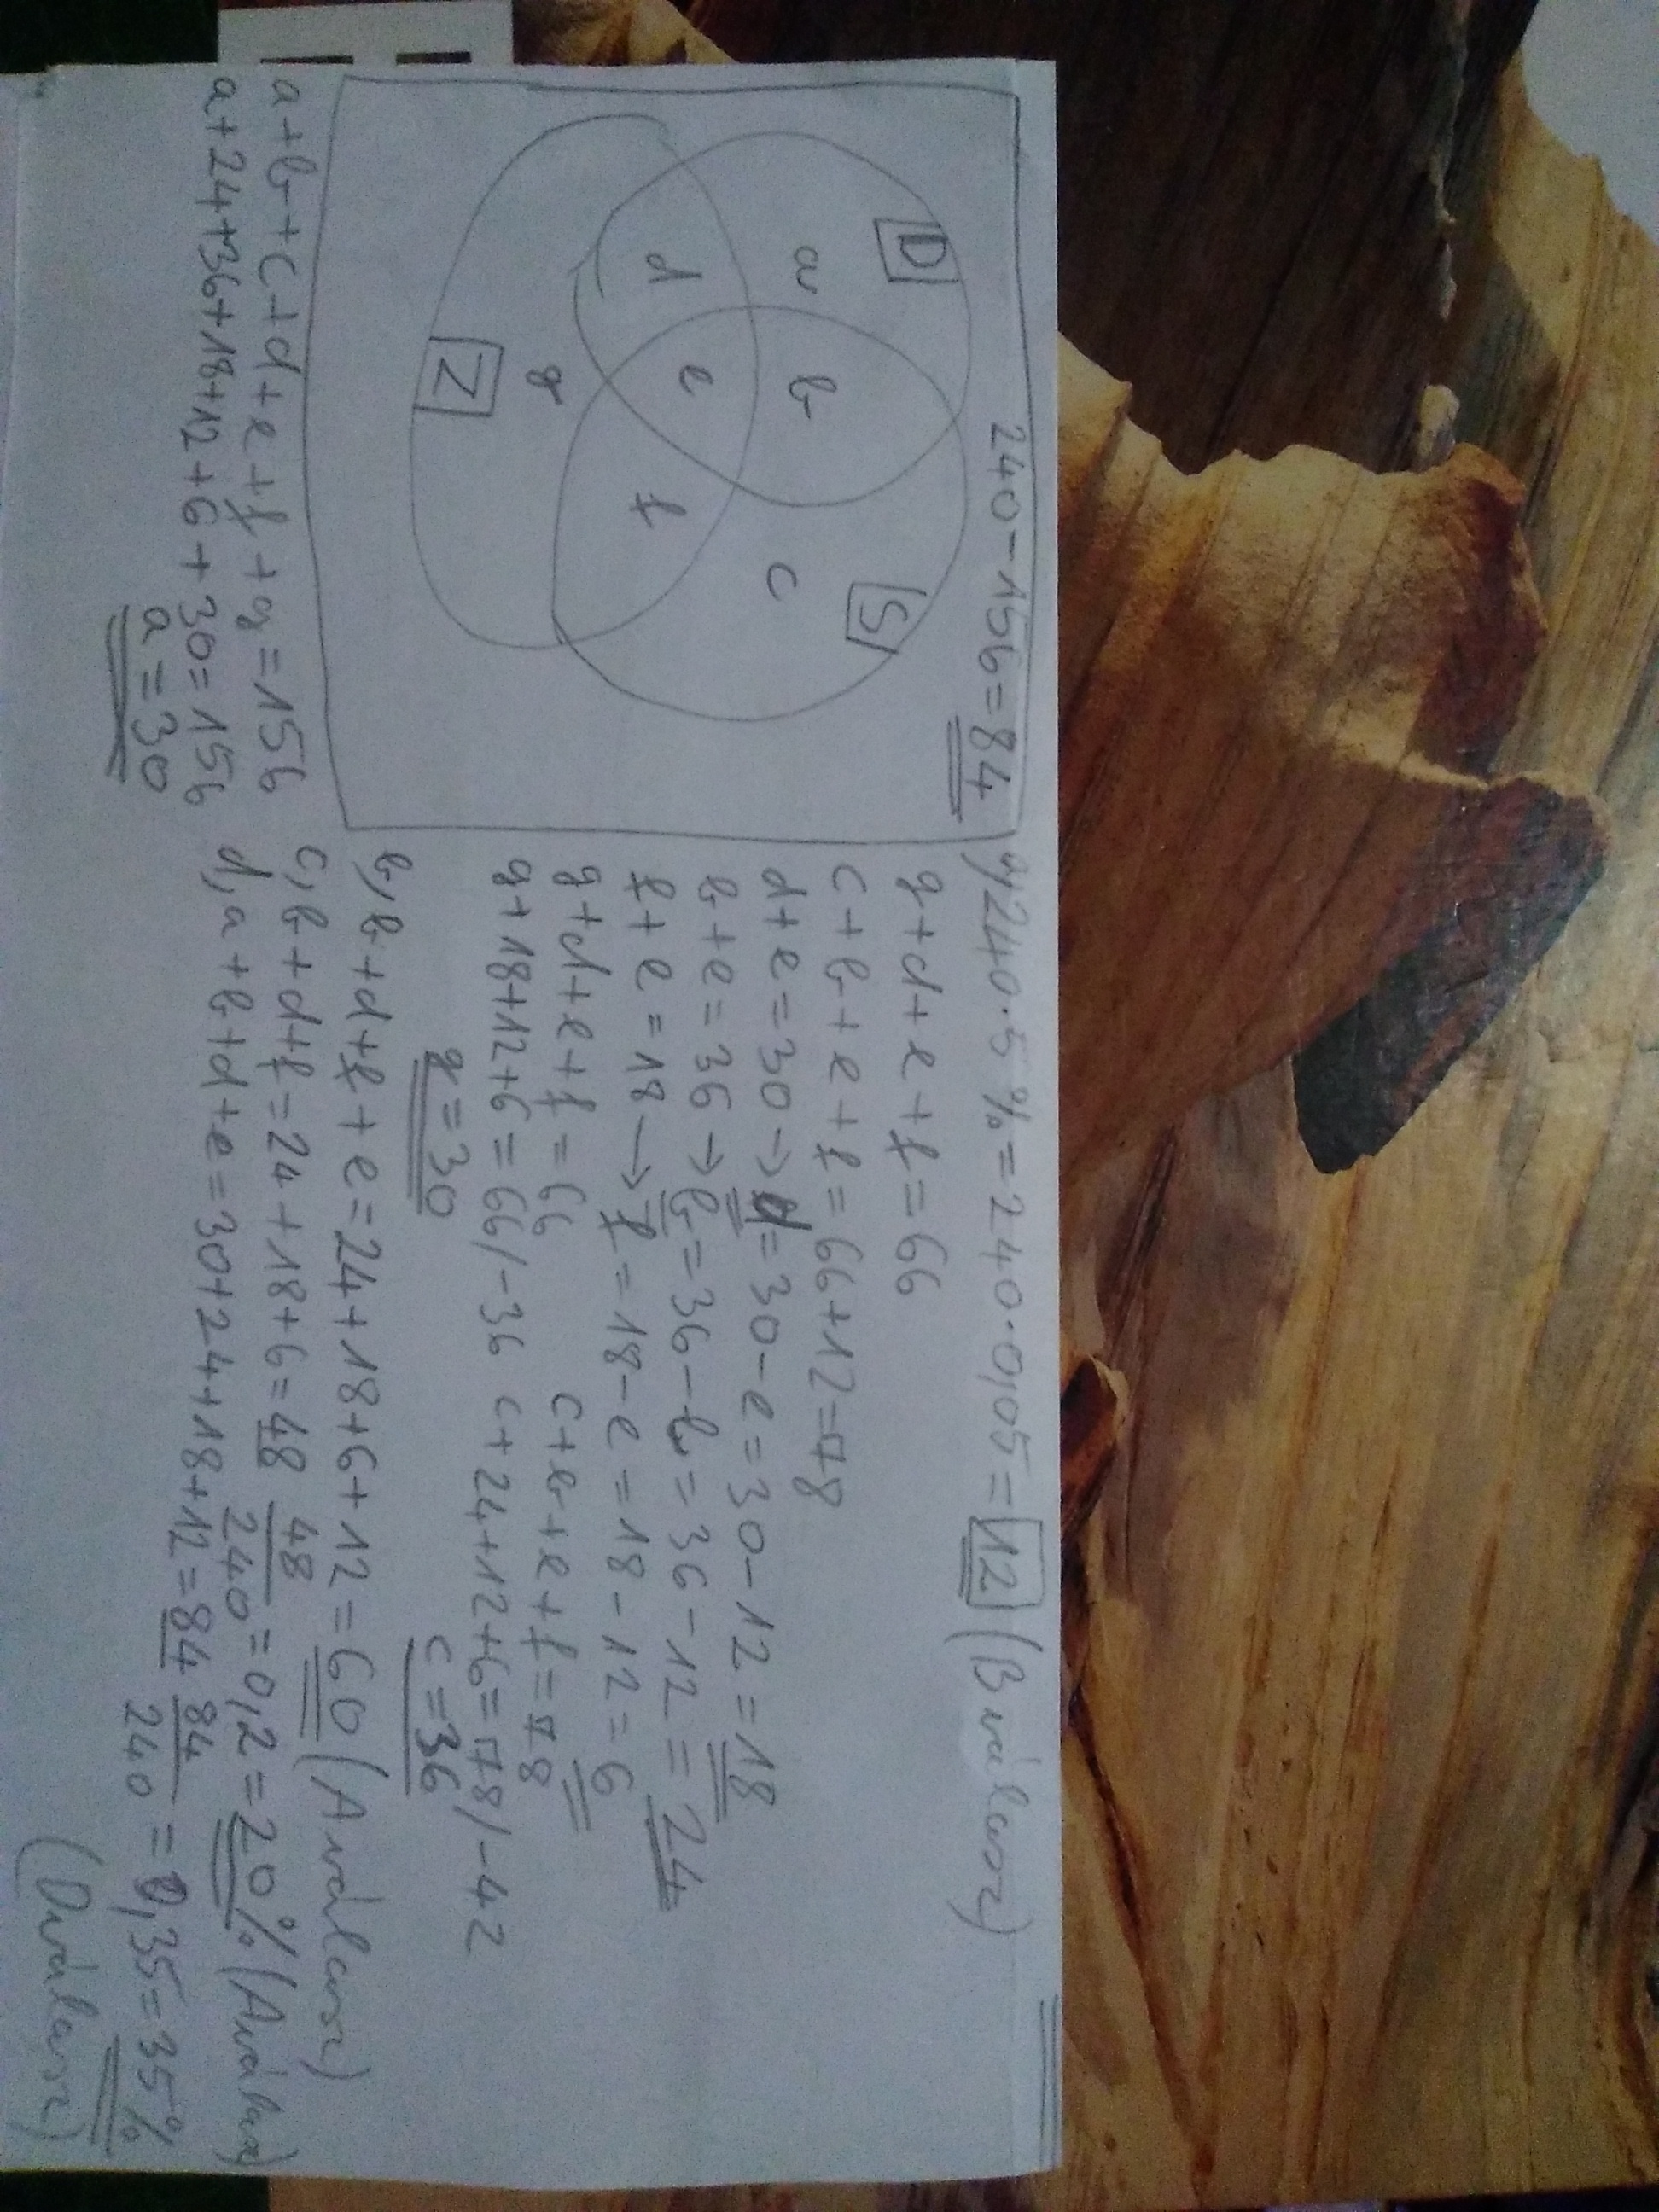 240-156=84
D
S
a
b
c
d
e
f
g
Z
a+b+c+d+e+f+g=156
a+24+36+18+12+6+30=156
a=30
a,240·5%=240·0,05=12 (B válasz)
g+d+e+f=66
c+b+e+f=66+12=78
d+e=30→d=30-e=30-12=18
b+e=36→b=36-e=36-12=24
f+e=18→f=18-e=18-12=6
g+d+e+f=66 c+b+e+f=78
g+18+12+6=66/-36 c+24+12+6=78/-42
g=30 c=36
b, b+d+f+e=24+18+6+12=60 (A válasz)
c, b+d+f=24+18+6=48 48/240=0,2=20% (A válasz)
d, a+b+d+e=30+24+18+12=84 84/240=0,35=35%
(D válasz)